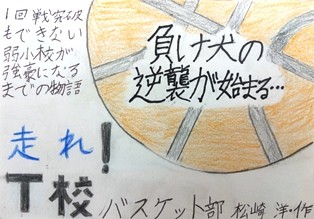 1回戦突破
もできない
弱小校が
強豪になる
までの物語
負け犬の
逆襲が始まる…
走れ!
T校
バスケット部 松崎洋・作